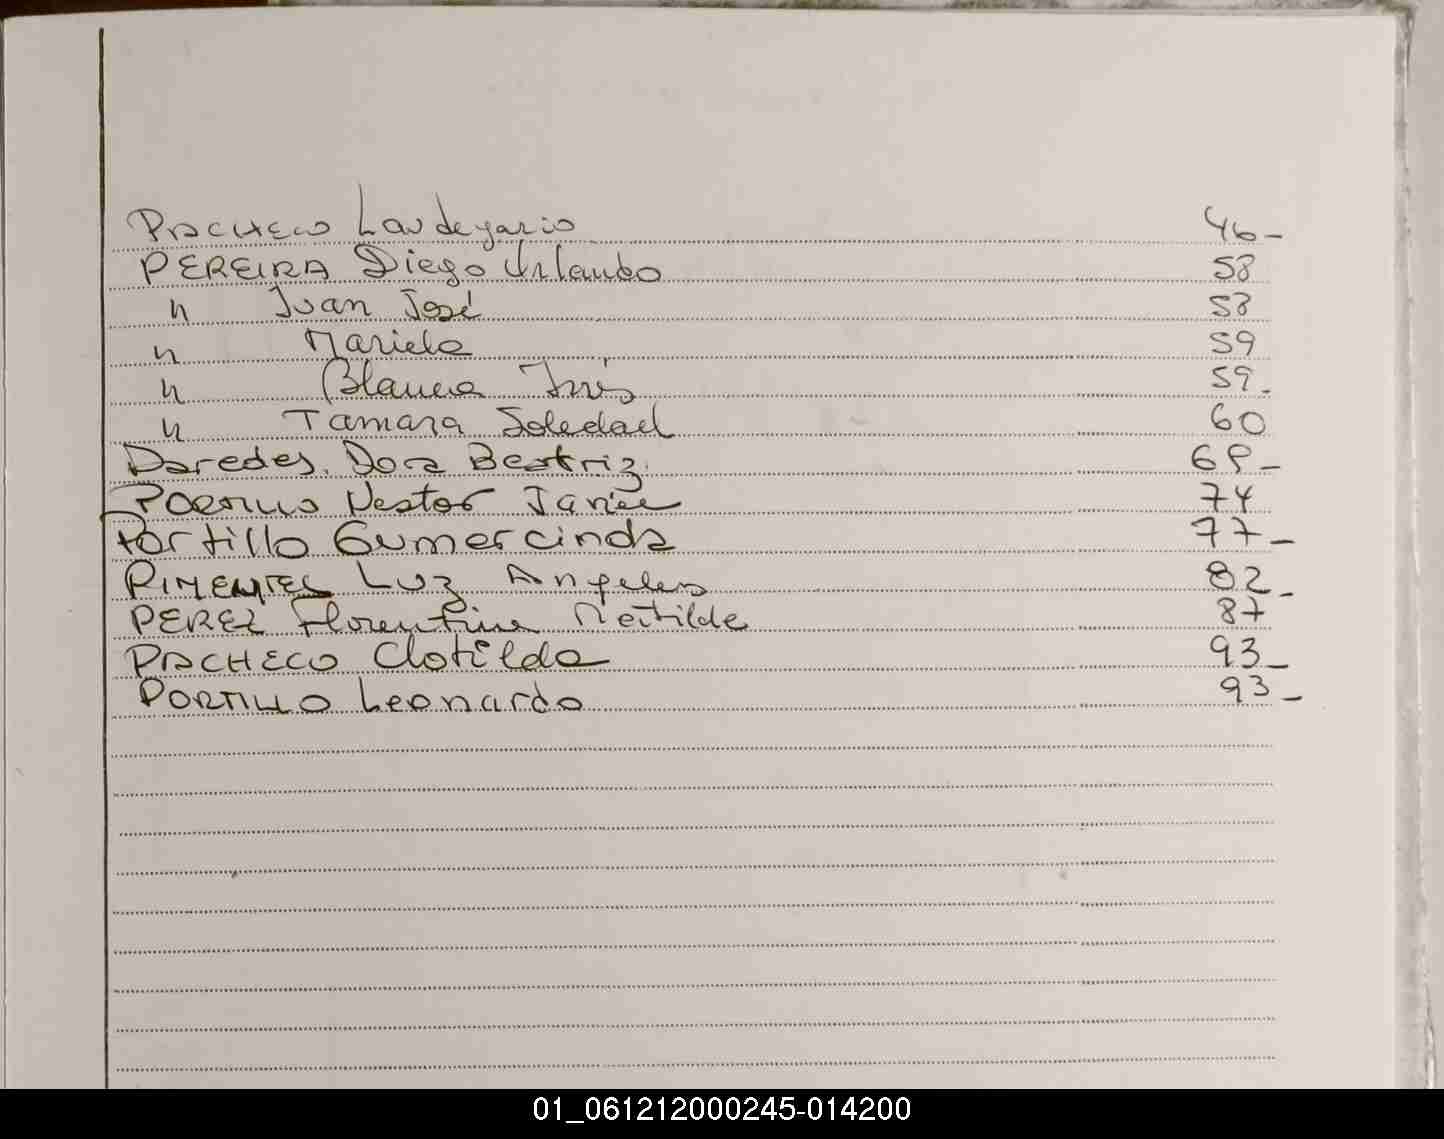 PACHECO Laudegario 46-
PEREIRA Diego Orlando 58
" Juan José 58
" Mariela 59
" Blanca Inés 59-
" Tamara Soledad 60
Paredes Dora Beatriz 69-
PORTILLO Nestor Javier 74
Portillo Gumercinda 77-
PIMENTEL Luz Angeles 82-
PEREZ Florentina Matilde 87
PACHECO Clotilda 93-
PORTILLO Leonardo 93-
01_061212000245-014200